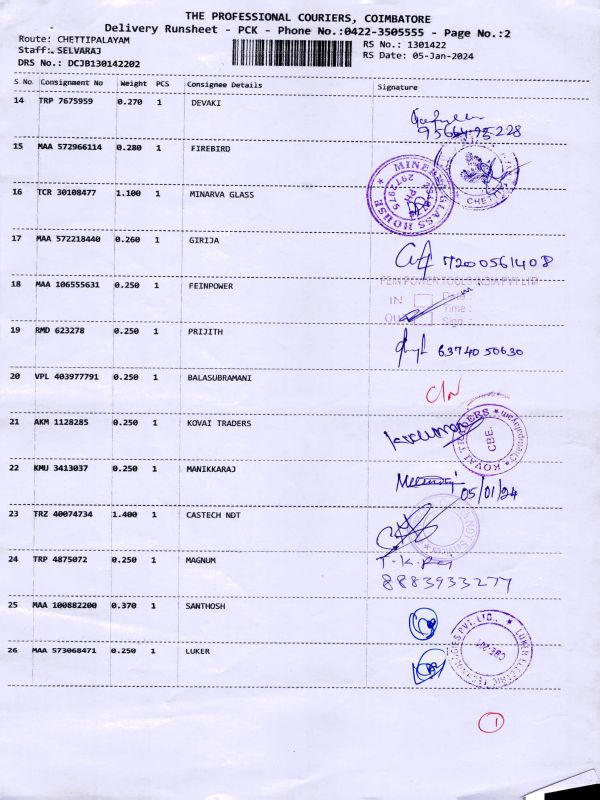 THE PROFESSIONAL COURIERS, COIMBATORE
Delivery Runsheet - PCK - Phone No.:0422-3505555 - Page No.:2
Route: CHETTIPALAYAM
RS No.: 1301422
Staff: SELVARAJ
RS Date: 05-Jan-2024
DRS No.: DCJB130142202
S No Consignment No Weight PCS Consignee Details Signature
14 TRP 7675959 0.270 1 DEVAKI
15 MAA 572966114 0.280 1 FIREBIRD
CHETTI
16 TCR 30108477 1.100 1 MINARVA GLASS
MINERVA GLASS HOUSE
17 MAA 572218440 0.260 1 GIRIJA
7200561408
18 MAA 106555631 0.250 1 FEINPOWER
FEIN POWER TOOLS INDIA PVT LTD
IN Date
Time :
OUT Sign
19 RMD 623278 0.250 1 PRIJITH
63740 50630
20 VPL 403977791 0.250 1 BALASUBRAMANI
C/N
21 AKM 1128285 0.250 1 KOVAI TRADERS
KOVAI TRADERS CBE.
22 KMU 3413037 0.250 1 MANIKKARAJ
05/01/24
23 TRZ 40074734 1.400 1 CASTECH NDT
24 TRP 4875072 0.250 1 MAGNUM
T.K.
8883933277
25 MAA 100882200 0.370 1 SANTHOSH
26 MAA 573068471 0.250 1 LUKER
LUKER ELECTRIC TECHNOLOGIES PVT. LTD.
1